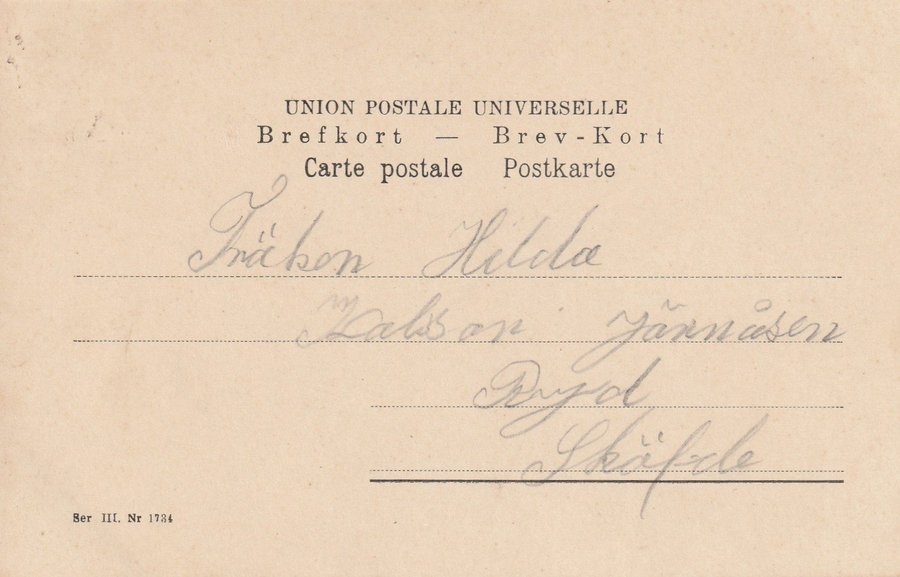 UNION POSTALE UNIVERSELLE
Brefkort — Brev-Kort
Carte postale Postkarte
Fröken Hilda
Kalsson Järnåsen
Ryd
Sköfde
Ser III. Nr 1734